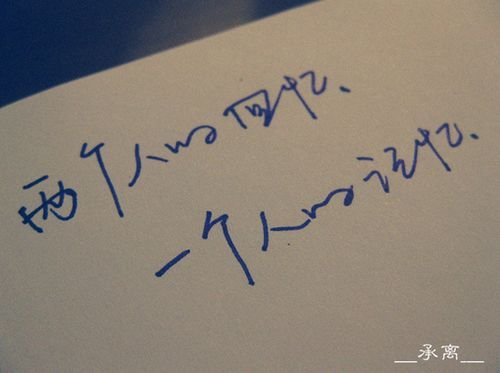 两个人的回忆、
一个人的记忆、
__承离__